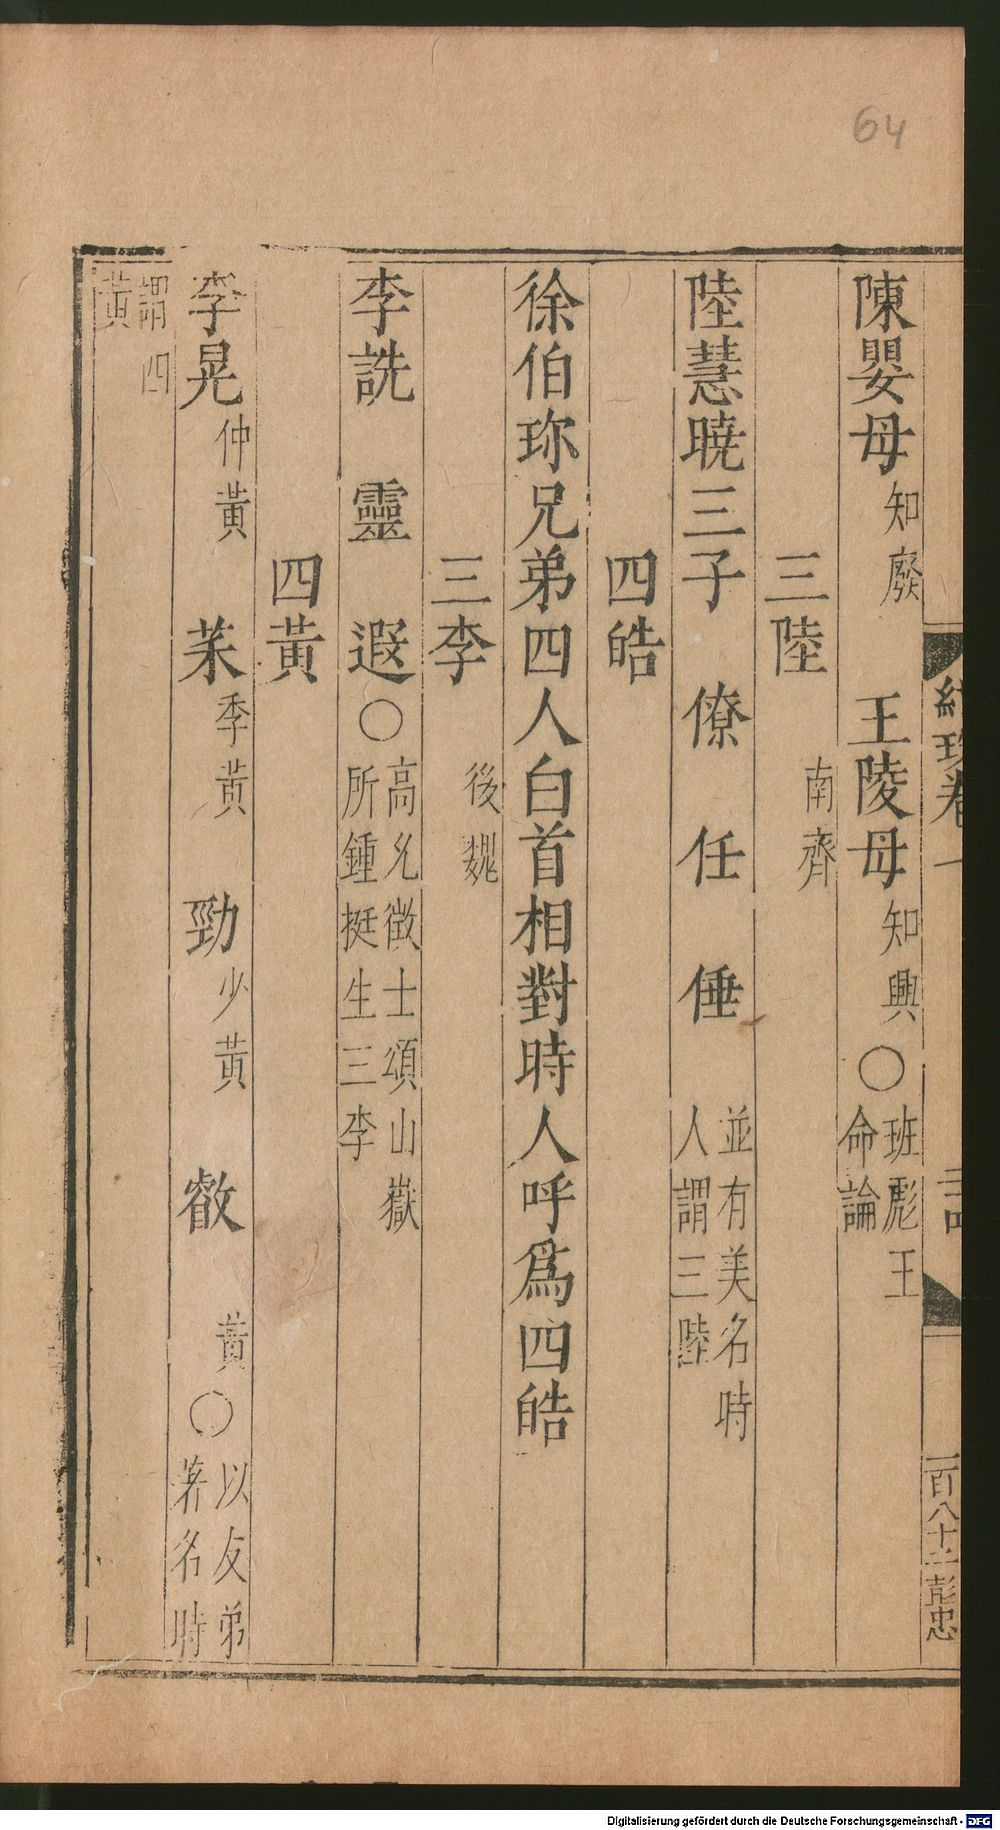 64
陳嬰母知廢 王陵母知興〇班彪王命論
三陸 南齊
陸慧曉三子 僚 任 倕 並有美名時人謂三陸
四皓
徐伯珎兄弟四人白首相對時人呼爲四皓
三李 後魏
李詵 靈 遐〇高允徴士頌山嶽所鍾挺生三李
四黃
李晃仲黃 茉季黃 勁少黃 叡 黃〇以友弟著名時
謂四黃
卷一
一百八十二彭忠
Digitalisierung gefördert durch die Deutsche Forschungsgemeinschaft - DFG